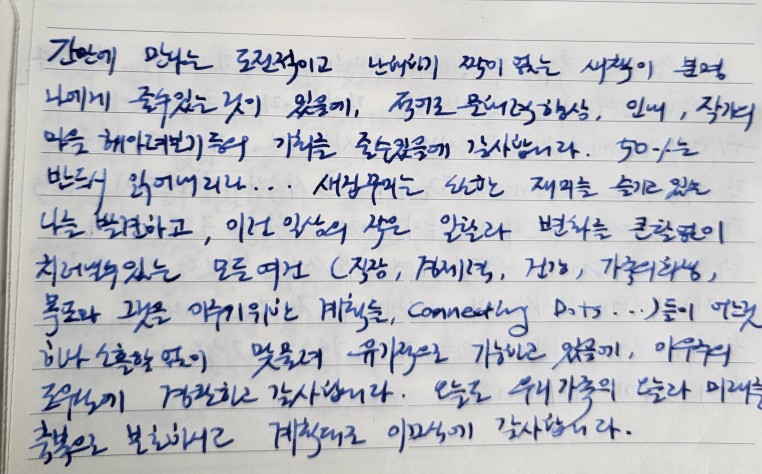 간만에 만나는 도전적이고 난해하기 짝이 없는 새책이 분명
나에게 줄수있는것이 있음에, 적어도 문해력향상, 인내, 작가의
마음 헤아려보기등의 기회를 줄수있음에 감사합니다. 50%는
반드시 읽어내리라... 새집꾸미는 소소한 재미를 즐기고 있는
나를 발견하고, 이런 일상의 작은 일탈과 변화를 큰탈없이
치러낼수있는 모든여건 (직장, 경제력, 건강, 가족의화평,
목표와 그것을 이루기위한 계획들, Connecting Dots...)들이 어느것
하나 소홀함 없이 맞물려 유기적으로 가능하고 있음에, 이우주의
도우심에 경탄하고 감사합니다. 오늘도 우리가족의 오늘과 미래를
축복으로 보호하시고 계획대로 이끄심에 감사합니다.